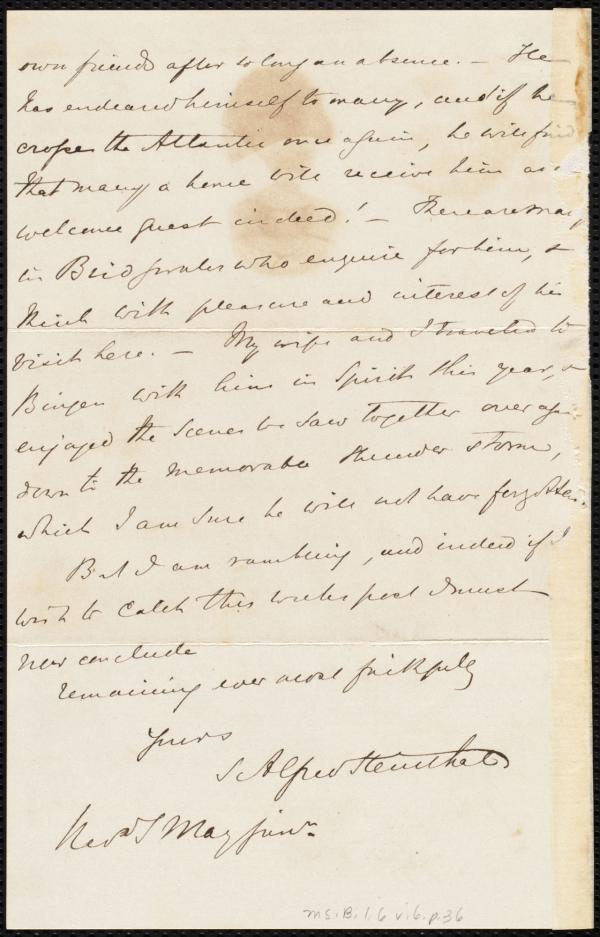 own friends after so long an absence. – He
has endeared himself to many, and if he
cross the Atlantic once again, he will find
that many a home will receive him as a
welcome guest indeed! – There are many
in Bridgwater who enquire for him, &
think with pleasure and interest of his
visit here. – My wife and I traveled to
Bingen with him in Spirit this year, &
enjoyed the scenes we saw together over again
down to the memorable thunder storm,
which I am sure he will not have forgotten.
But I am rambling, and indeed if I
wish to catch this weeks post I must
now conclude
remaining ever most faithfully
Yours
S Alfred Steinthal
Revd S May junr.
Ms. B. 1. 6 v. 6. p. 36